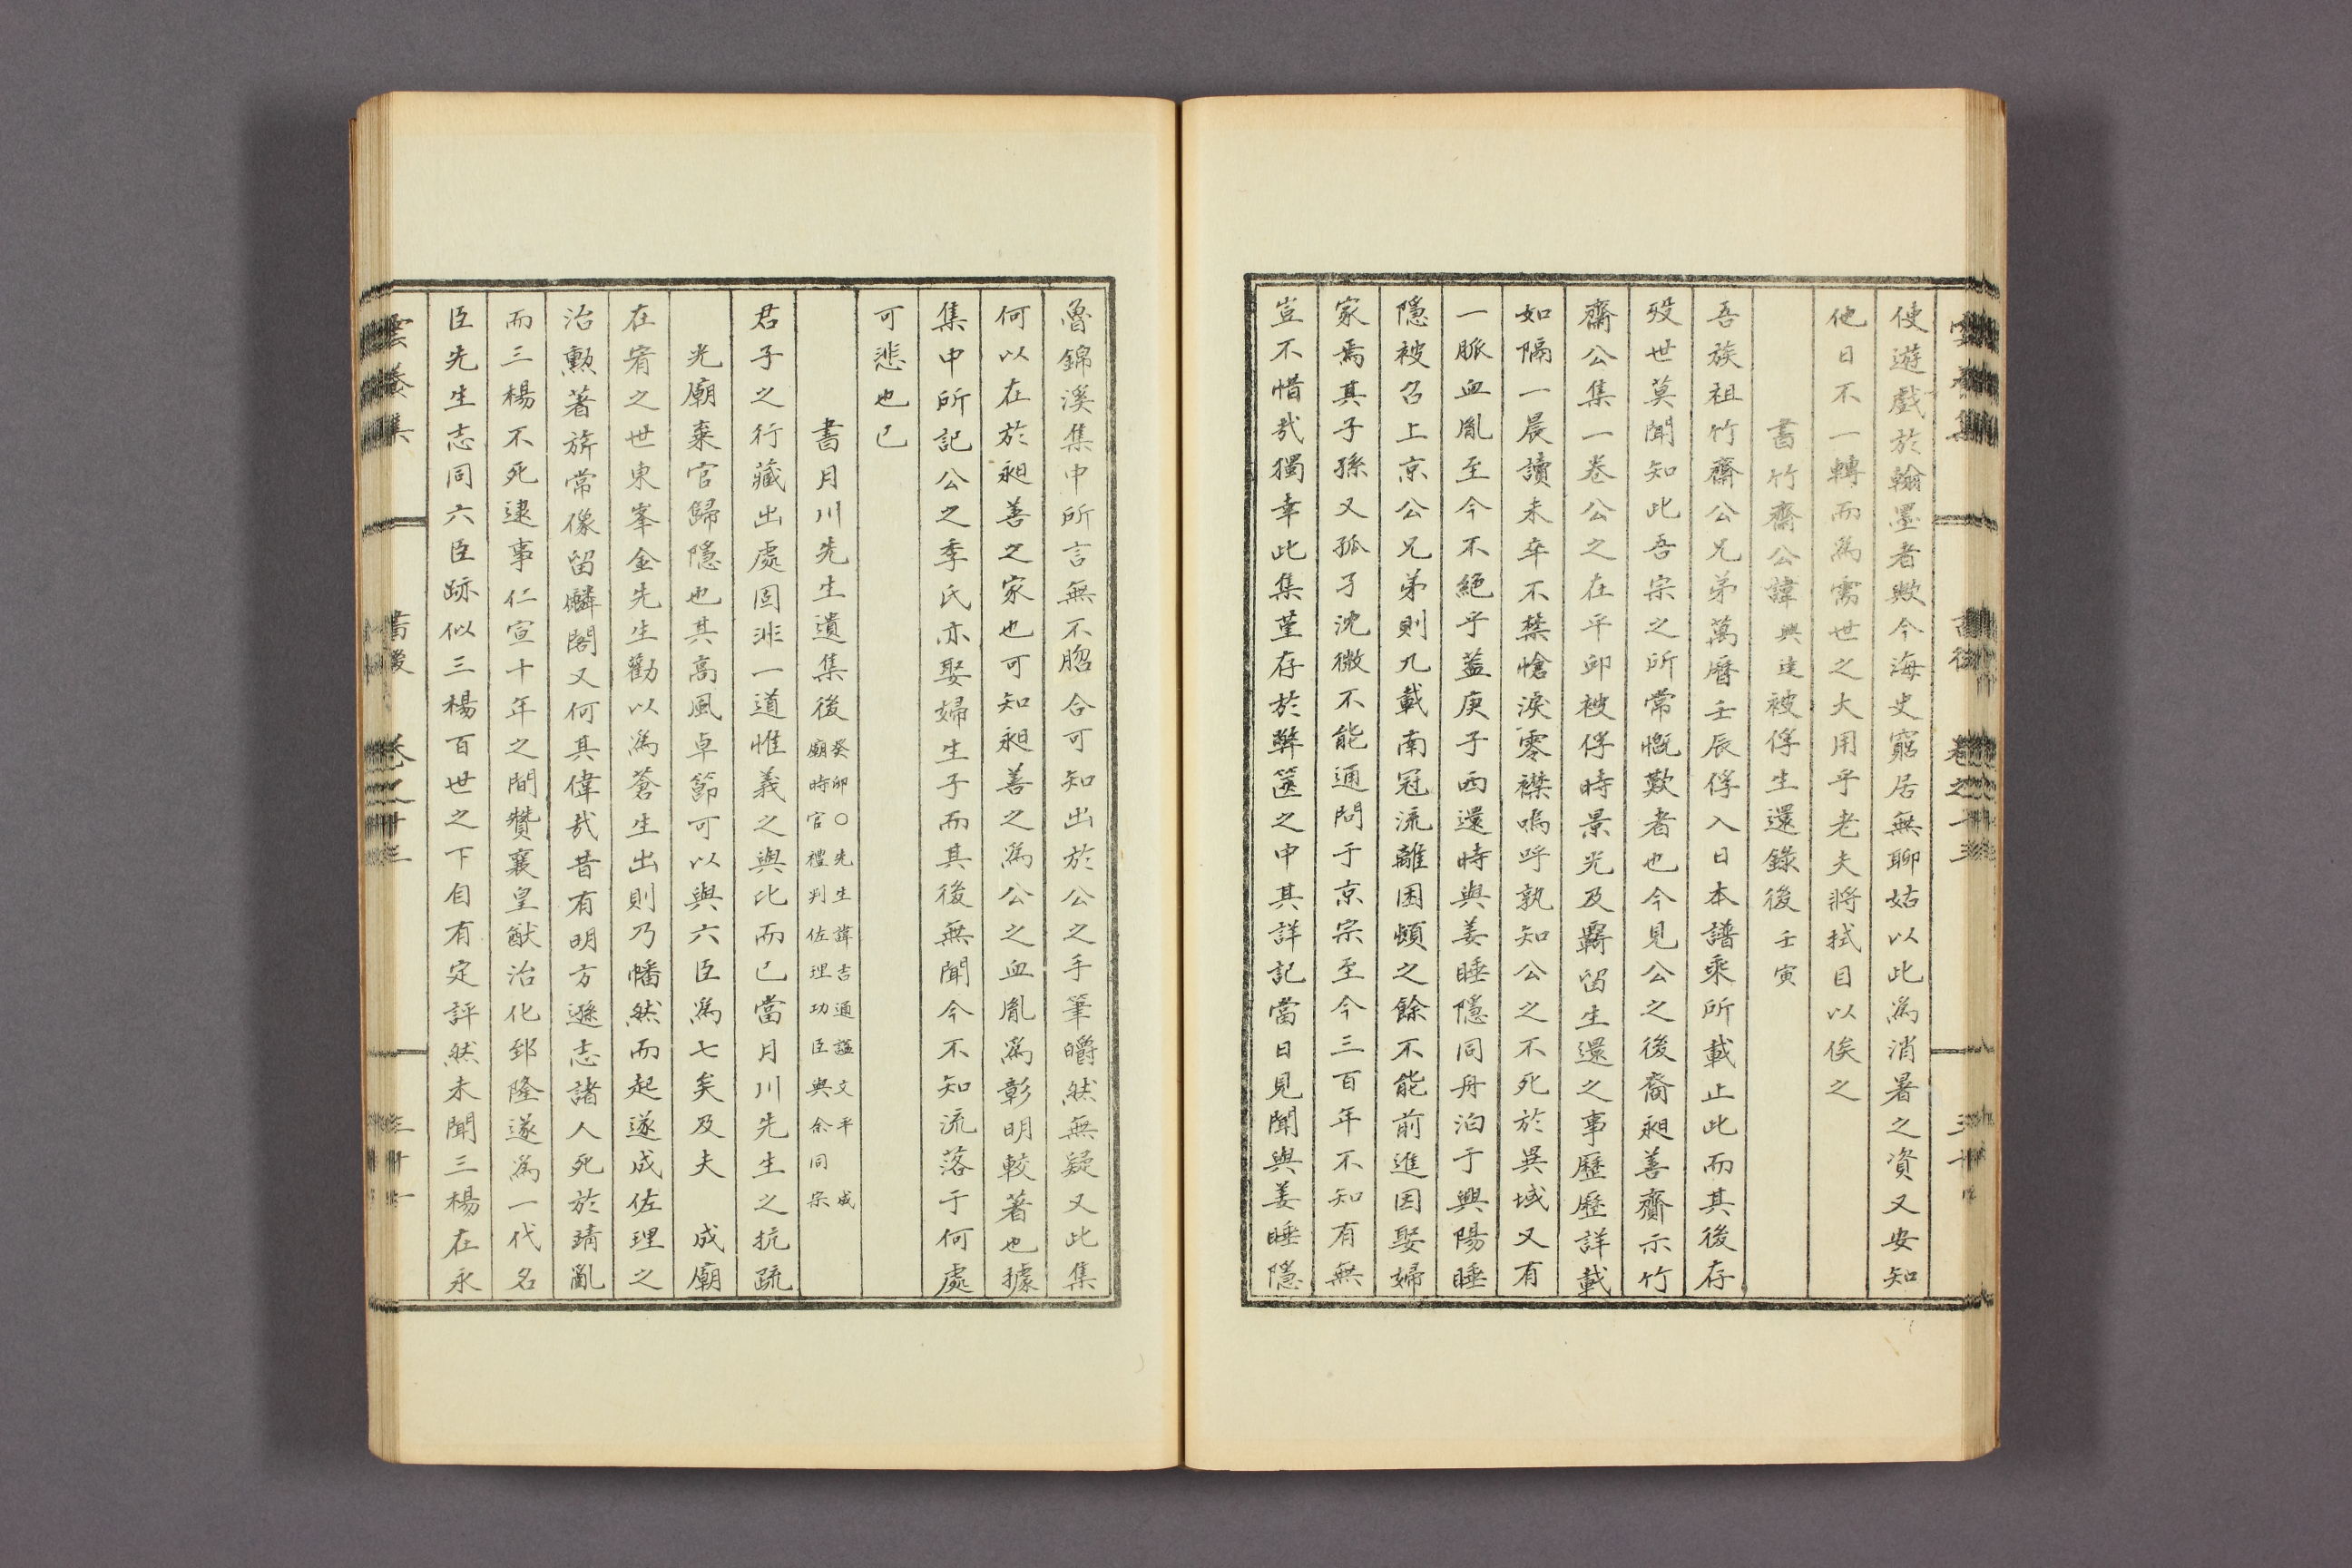 使遊戲於翰墨者歟今海史窮居無聊姑以此爲消暑之資又安知
他日不一轉而爲需世之大用乎老夫將拭目以俟之
書竹齋公諱興達被俘生還錄後壬寅
吾族祖竹齋公兄弟萬曆壬辰俘入日本譜乘所載止此而其後存
歿世莫聞知此吾宗之所常慨歎者也今見公之後裔昶善齎示竹
齋公集一卷公之在平卭被俘時景光及羈留生還之事歷歷詳載
如隔一晨讀未卒不禁愴淚零襟嗚呼孰知公之不死於異域又有
一脈血胤至今不絕乎蓋庚子西還時與姜睡隱同舟泊于興陽睡
隱被召上京公兄弟則九載南冠流離困頓之餘不能前進因娶婦
家焉其子孫又孤孑沈微不能通問于京宗至今三百年不知有無
豈不惜哉獨幸此集堇存於弊篋之中其詳記當日見聞與姜睡隱
魯錦溪集中所言無不脗合可知出於公之手筆皭然無疑又此集
何以在於昶善之家也可知昶善之爲公之血胤爲彰明較著也據
集中所記公之季氏亦娶婦生子而其後無聞今不知流落于何處
可悲也已
書月川先生遺集後
癸卯○先生諱吉通謚文平 成
廟時官禮判佐理功臣與余同宗
君子之行藏出處固非一道惟義之與比而已當月川先生之抗疏
光廟棄官歸隱也其高風卓節可以與六臣爲七矣及夫 成廟
在宥之世東峯金先生勸以爲蒼生出則乃幡然而起遂成佐理之
治勳著旂常像留麟閣又何其偉哉昔有明方遜志諸人死於靖亂
而三楊不死逮事仁宣十年之間贊襄皇猷治化郅隆遂爲一代名
臣先生志同六臣跡似三楊百世之下自有定評然未聞三楊在永
雲養集 書後 卷之十三 三十一